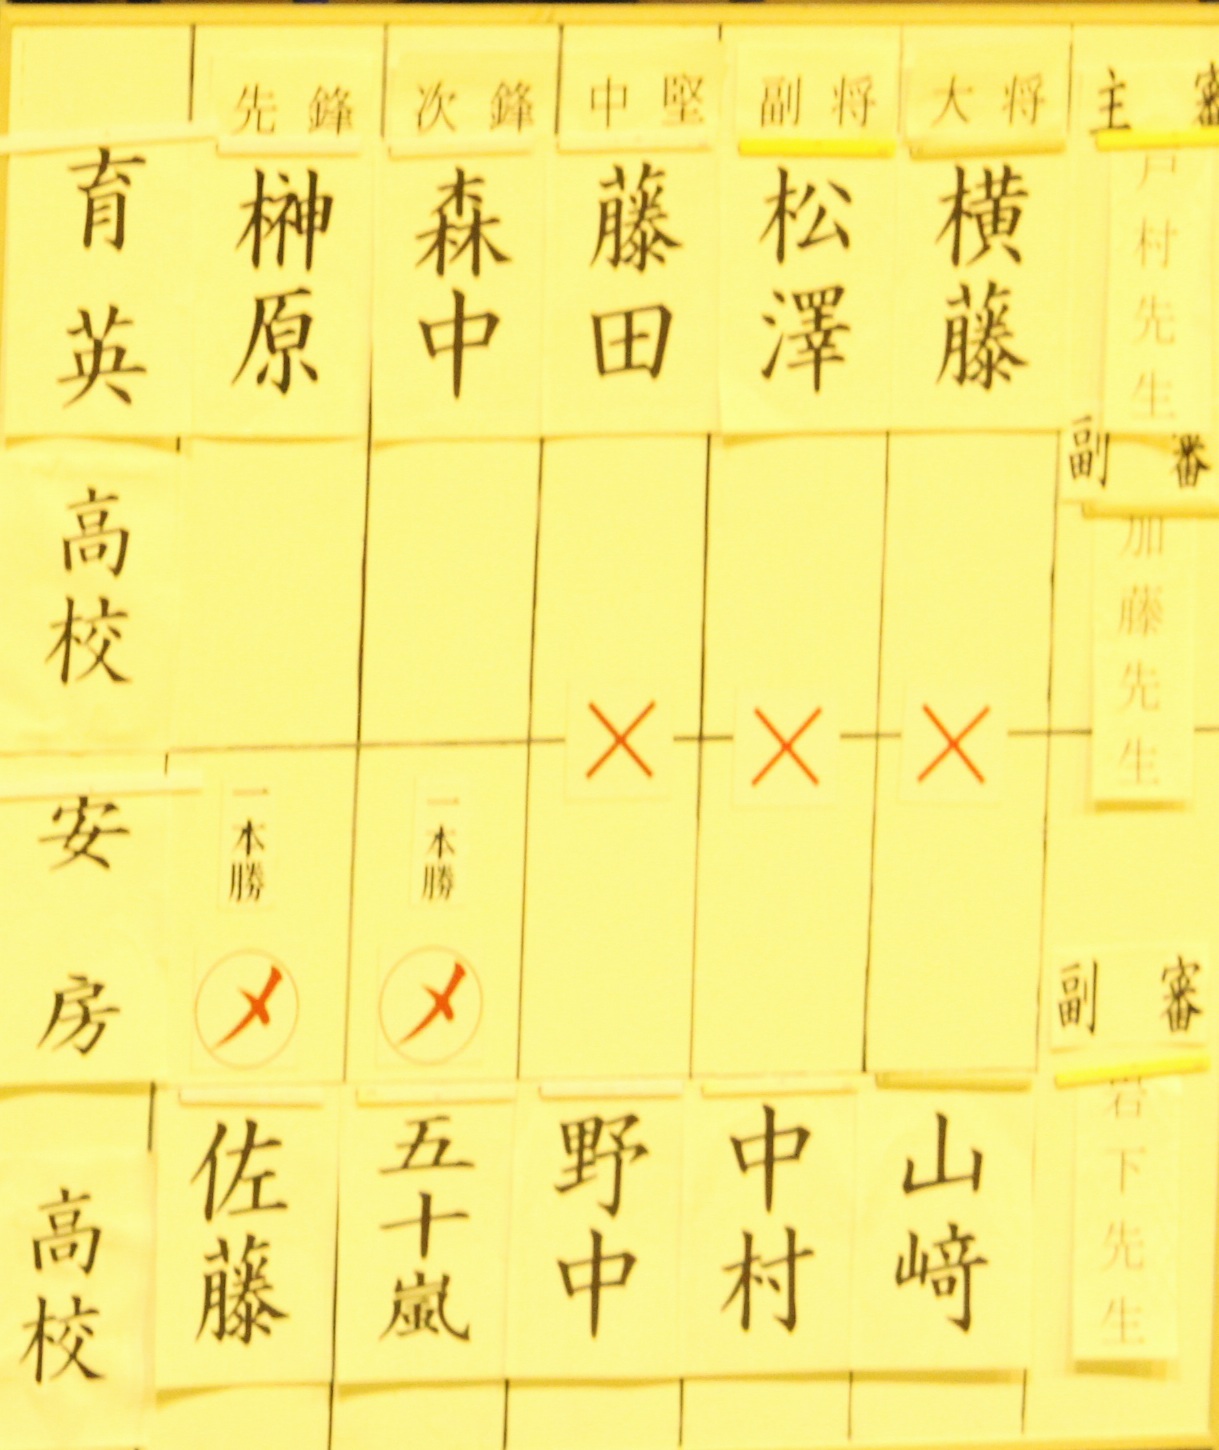 先鋒
次鋒
中堅
副将
大将
主審
育英高校
榊原
森中
藤田
松澤
横藤
戸村先生
副審
加藤先生
×
×
×
一本勝
一本勝
メ
メ
安房高校
佐藤
五十嵐
野中
中村
山﨑
副審
岩下先生